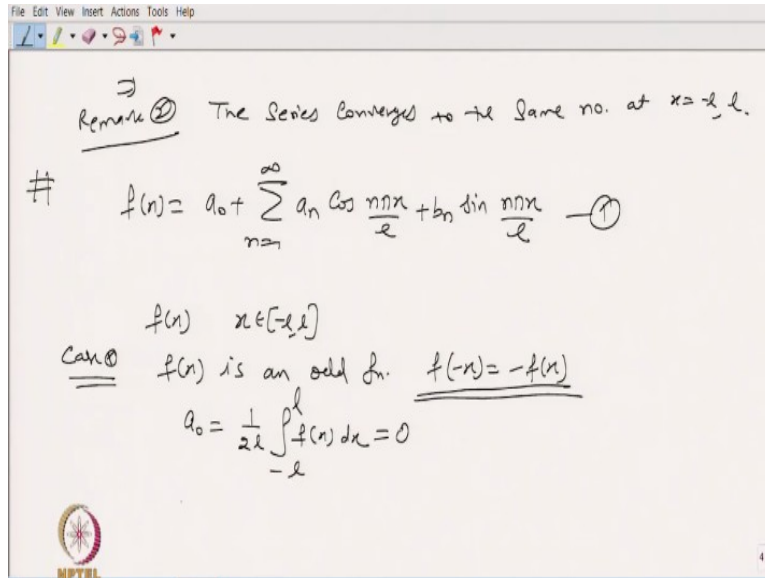 File Edit View Insert Actions Tools Help
⇒
Remark ② The Series Converges to the Same no. at x = -l, l.
# f(x) = a₀ + ∞∑n=1 aₙ Cos nπx/l + bₙ Sin nπx/l —①
f(x) x∈[-l, l]
Case① f(x) is an odd fn. f(-x) = -f(x)
a₀ = 1/2l ∫₋ₗˡ f(x) dx = 0
NPTEL
4